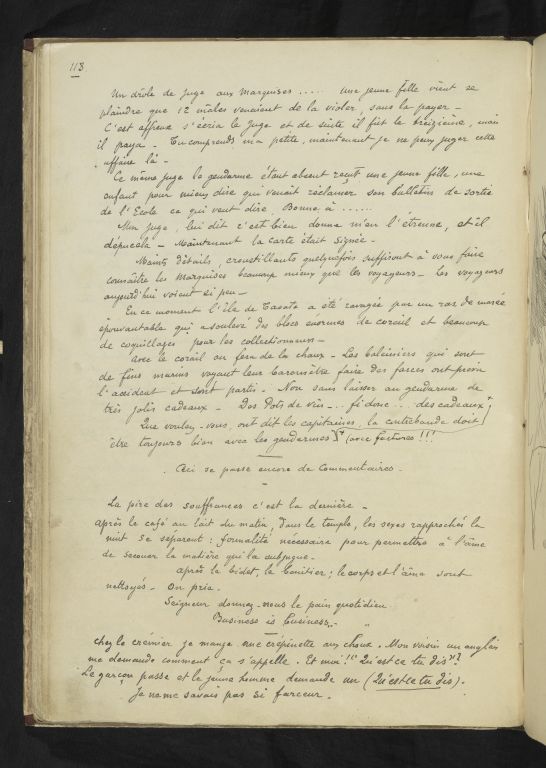 113
Un drôle de juge aux Marquises ..... une jeune fille vient se
plaindre que 12 mâles venaient de la violer, sans la payer _
C'est affreux s'écria le Juge et de suite il fut le treizième, mais
il paya _ Tu comprends ma petite, maintenant je ne peux juger cette
affaire là _
Ce même juge le gendarme étant absent reçut une jeune fille, une
enfant pour mieux dire qui venait réclamer son bulletin de sortie
de l'Ecole ce qui veut dire, Bonne à ......
Mon juge, lui dit c'est bien donne m'en l'étrenne, et il
dépucela _ Maintenant la carte était signée _
Maints détails, croustillants quelquefois suffisent à vous faire
connaître les Marquises beaucoup mieux que les voyageurs _ Les voyageurs
aujourd'hui voient si peu _
En ce moment l'île de Taoata a été ravagée par un raz de marée
épouvantable qui a soulevé des blocs énormes de corail et beaucoup
de coquillages pour les collectionneurs _
avec le corail on fera de la chaux _ Les baleiniers qui sont
de fins marins voyant leur baromètre faire des farces ont prévu
l'accident et sont partis _ Non sans laisser au gendarme de
très jolis cadeaux _ Des Pots de vin _ fi donc ... des cadeaux + !
Que voulez-vous, ont dit les capitaines, la contrebande doit
être toujours bien avec les gendarmes + (avec factures !!!
Ceci se passe encore de Commentaires _
La pire des souffrances c'est la dernière _
après le café au lait du matin, dans le temple, les sexes rapprochés la
nuit se séparent : formalité nécessaire pour permettre à l'âme
de secouer la matière qui la subjugue _
après le bidet, le bénitier ; le corps et l'âme sont
nettoyés _ On prie _
Seigneur donnez-nous le pain quotidien
Business is business
chez le crémier je mange une crépinette aux choux . Mon voisin un anglais
me demande comment ça s'appelle . Et moi !! "Qu'est ce tu dis" ?
Le garçon passe et le jeune homme demande un (Qu'est ce tu dis).
Je ne me savais pas si farceur .